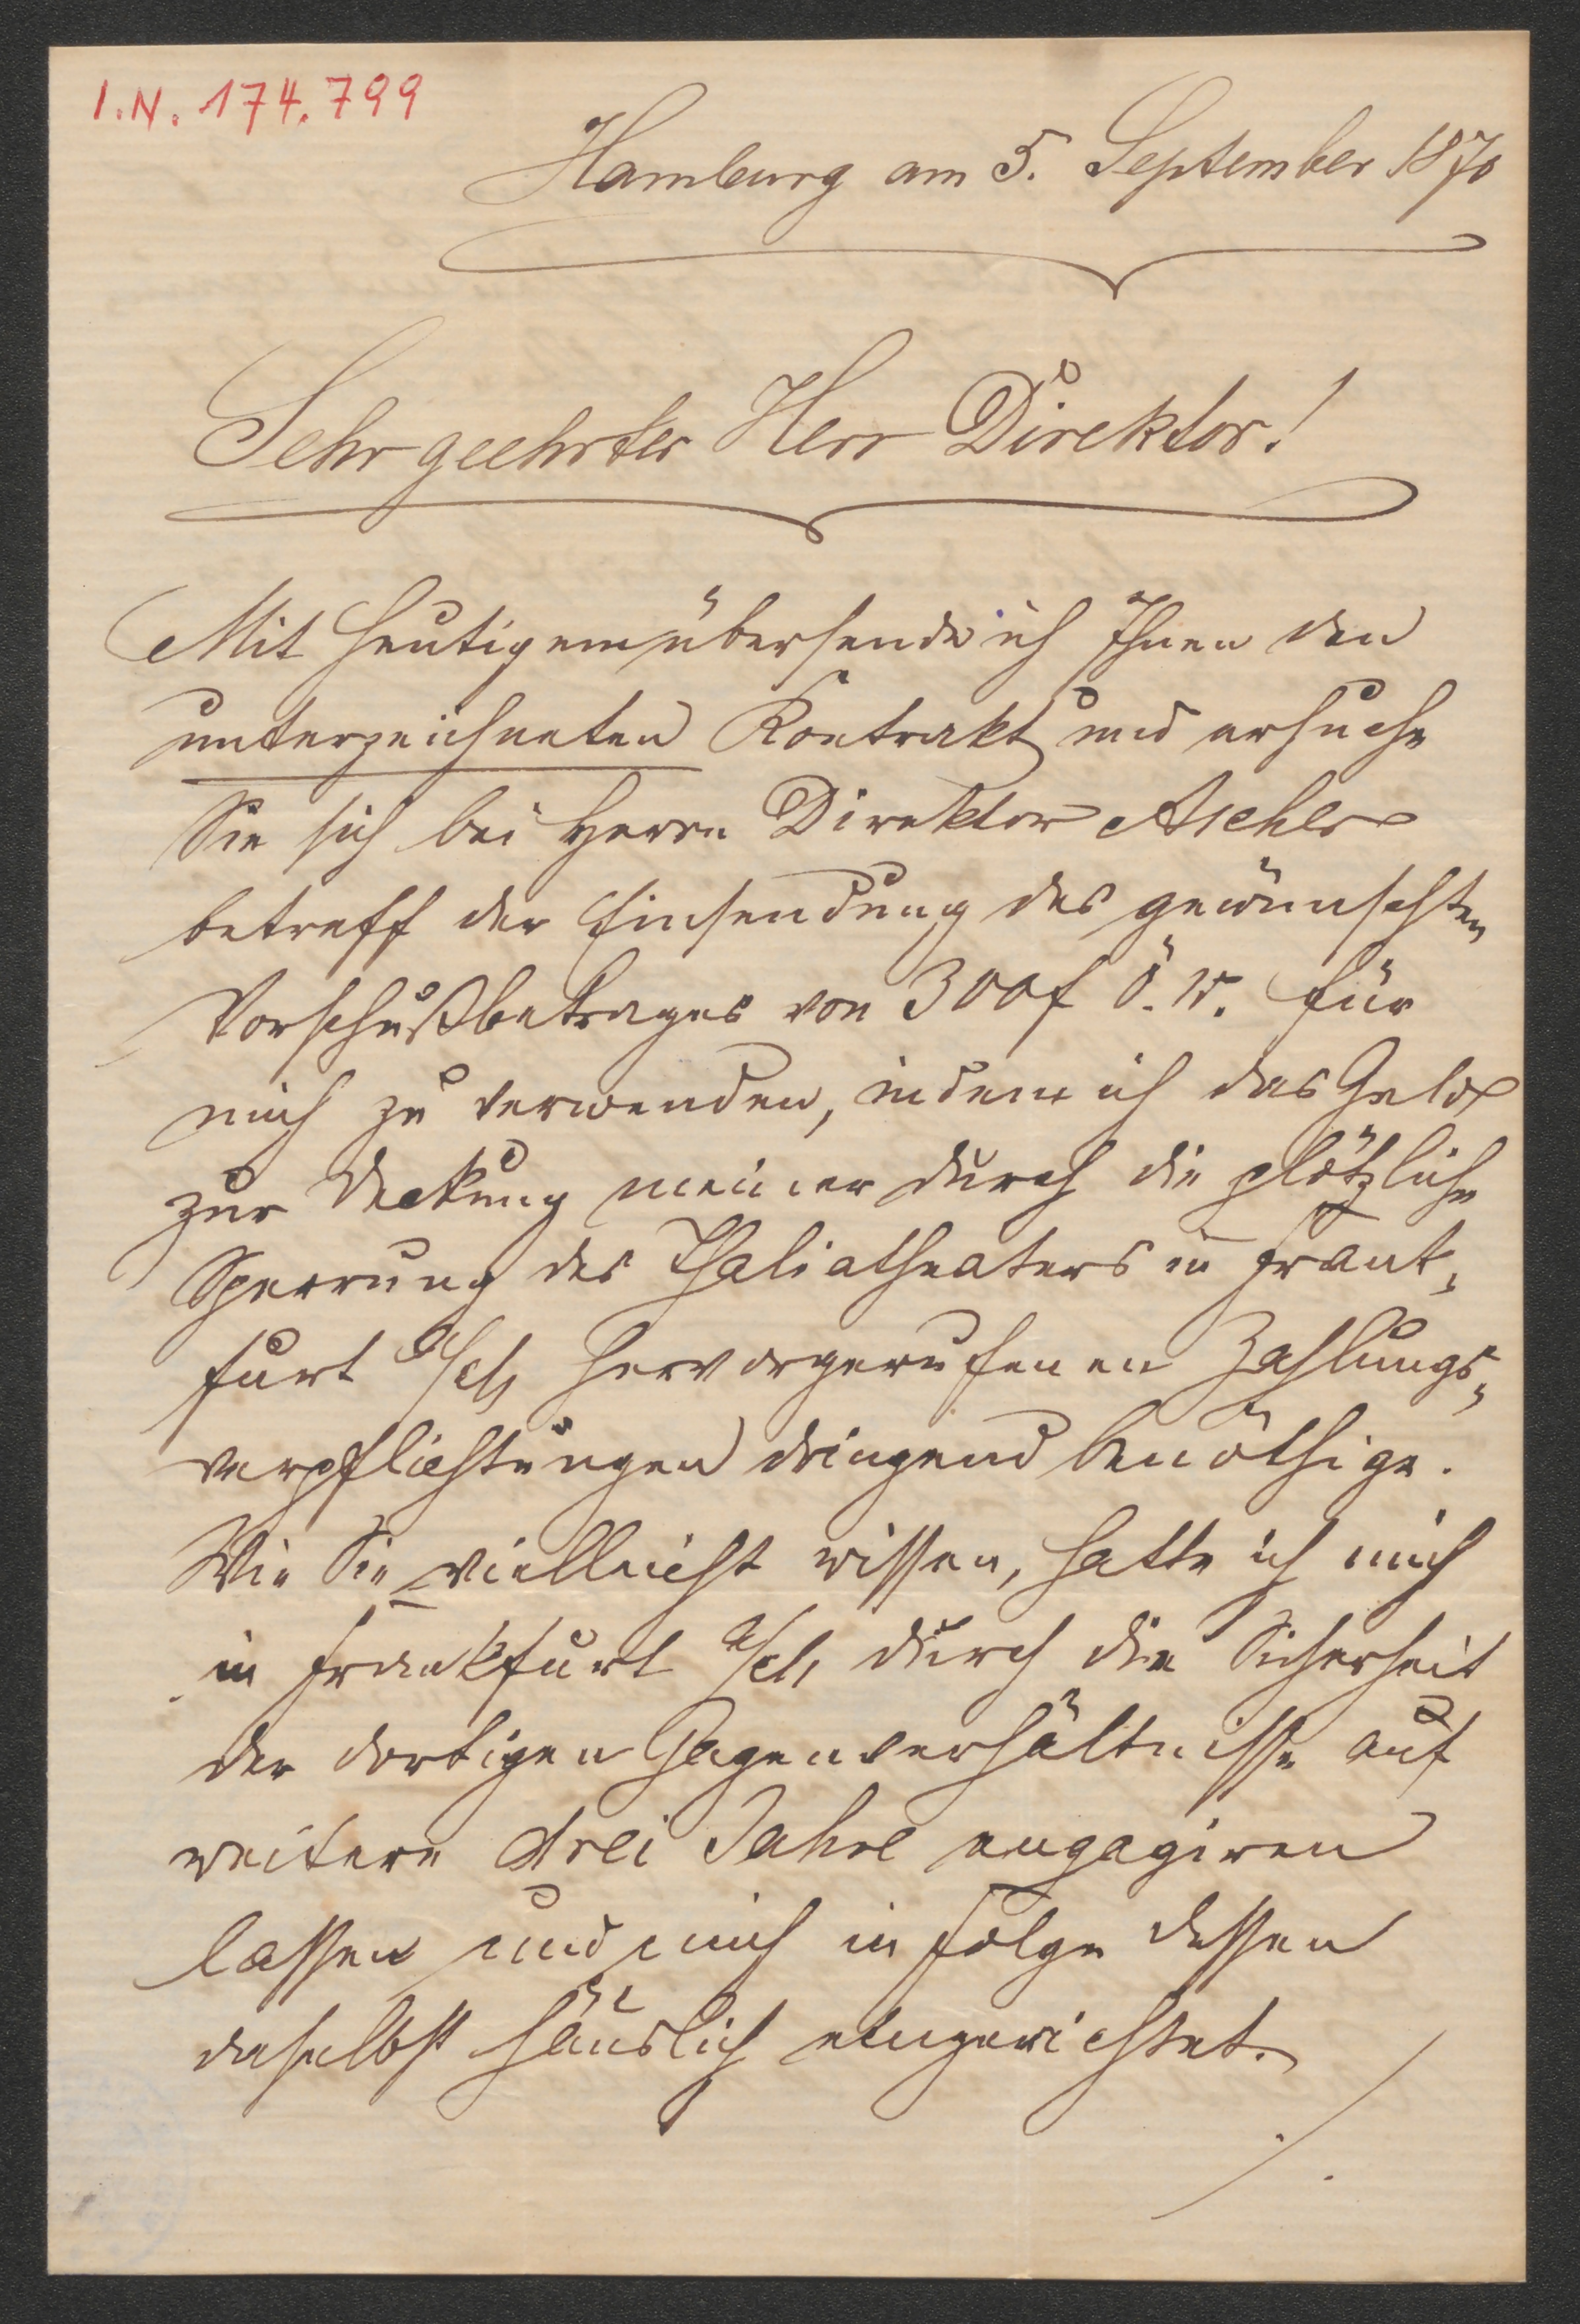 I.N. 174.799
Hamburg am 5. September 1870
Sehr geehrter Herr Direktor!
Mit Heutigem übersende ich Ihnen den
unterzeichneten Kontrakt und ersuche
Sie sich bei Herrn Direktor Ascher
betreff der Einsendung des gewünschten
Vorschußbetrages von 300 f ö. W. für
mich zu verwenden, indem ich das Geld
zur Deckung meiner durch die plötzliche
Sperrung des Thaliatheaters in Frank-
furt a/M hervorgerufenen Zahlungs-
verpflichtungen dringend benöthige.
Wie Sie vielleicht wissen, hatte ich mich
in Frankfurt a/M durch die Sicherheit
der dortigen Gagenverhältnisse auf
weitere drei Jahre engagiren
lassen und mich in Folge dessen
daselbst häuslich eingerichtet.
./.